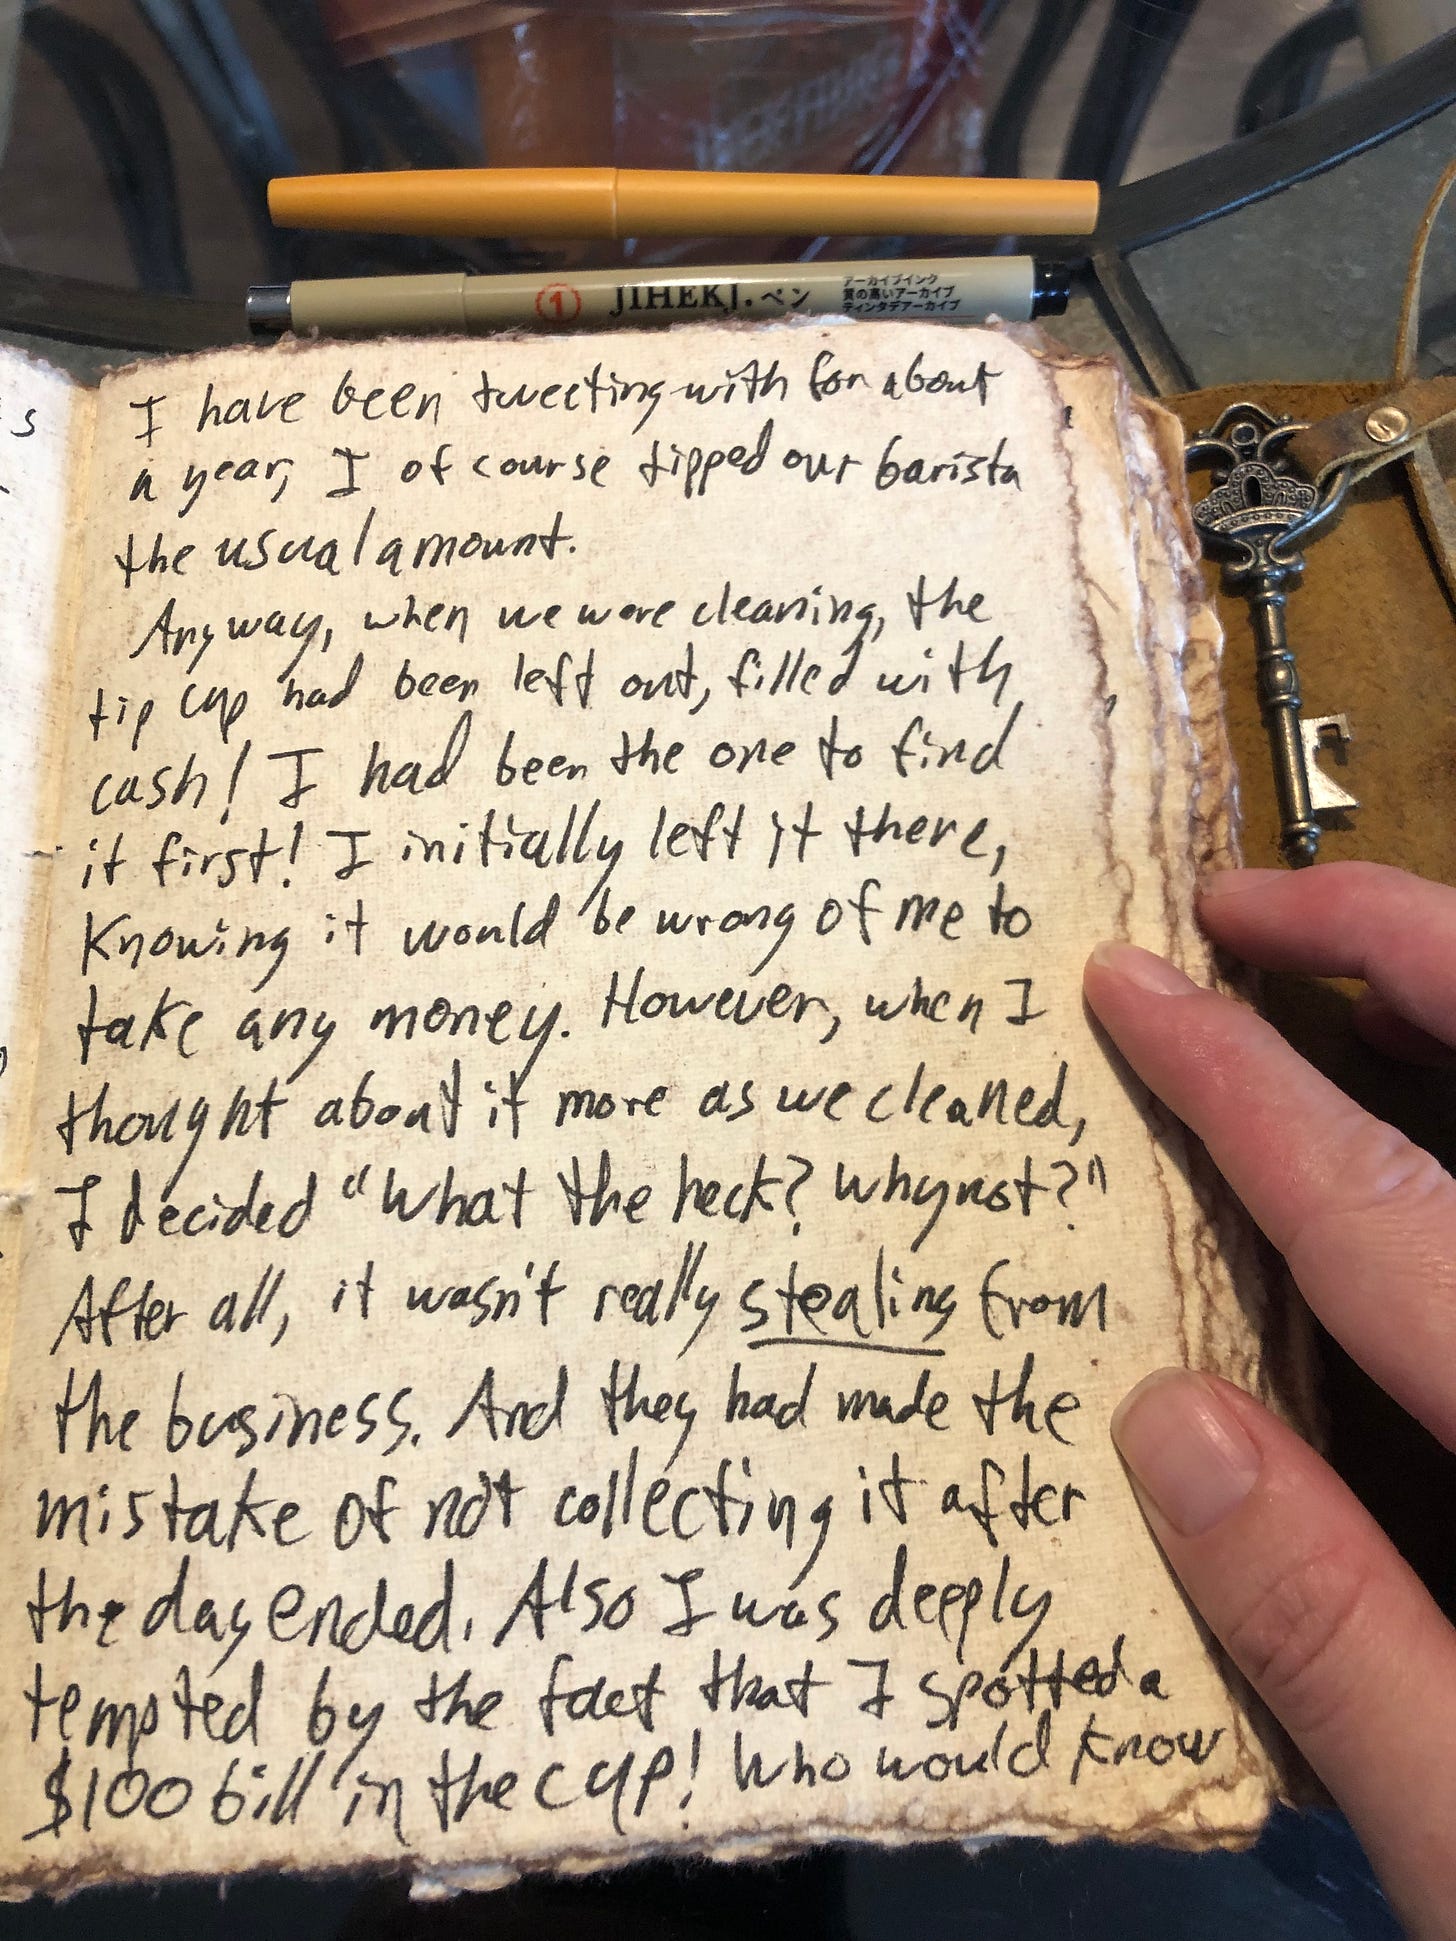 ① JIHEKJ. ペン
アーカイブインク
質の高いアーカイブ
ティンタデアーカイブ
s
I have been tweeting with for about
a year, I of course tipped our barista
the usual amount.
Anyway, when we were cleaning, the
tip cup had been left out, filled with
cash! I had been the one to find
it first! I initially left it there,
Knowing it would be wrong of me to
take any money. However, when I
thought about it more as we cleaned,
I decided "What the heck? Why not?"
After all, it wasn't really stealing from
the business. And they had made the
mistake of not collecting it after
the day ended. Also I was deeply
tempted by the fact that I spotted a
$100 bill in the cup! Who would know